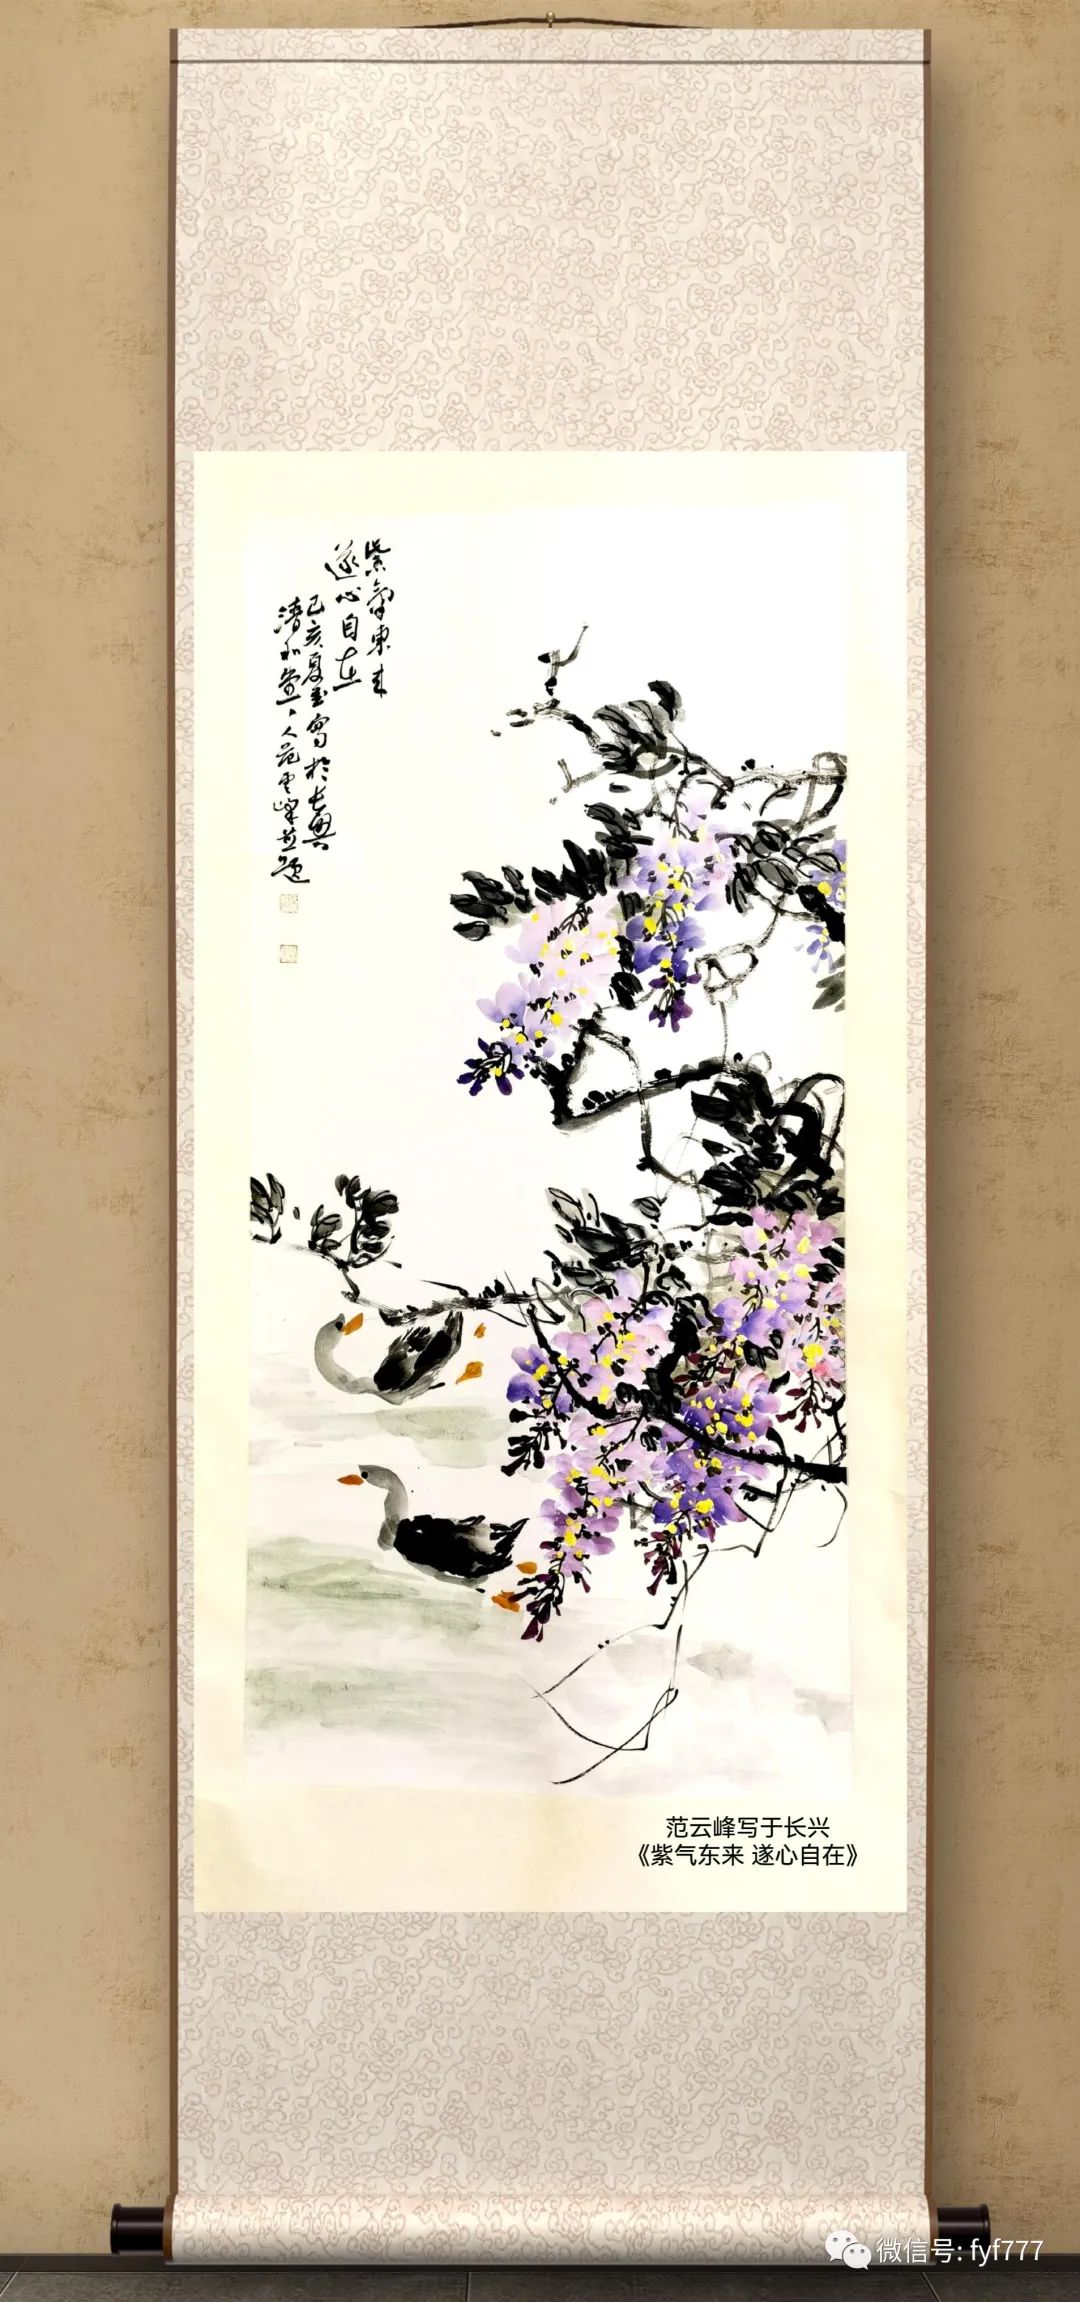 紫氣東来
遂心自在
己亥夏至寫於长興
清和堂主人范雲峰並题
范云峰写于长兴
《紫气东来 遂心自在》
微信号: fyf777